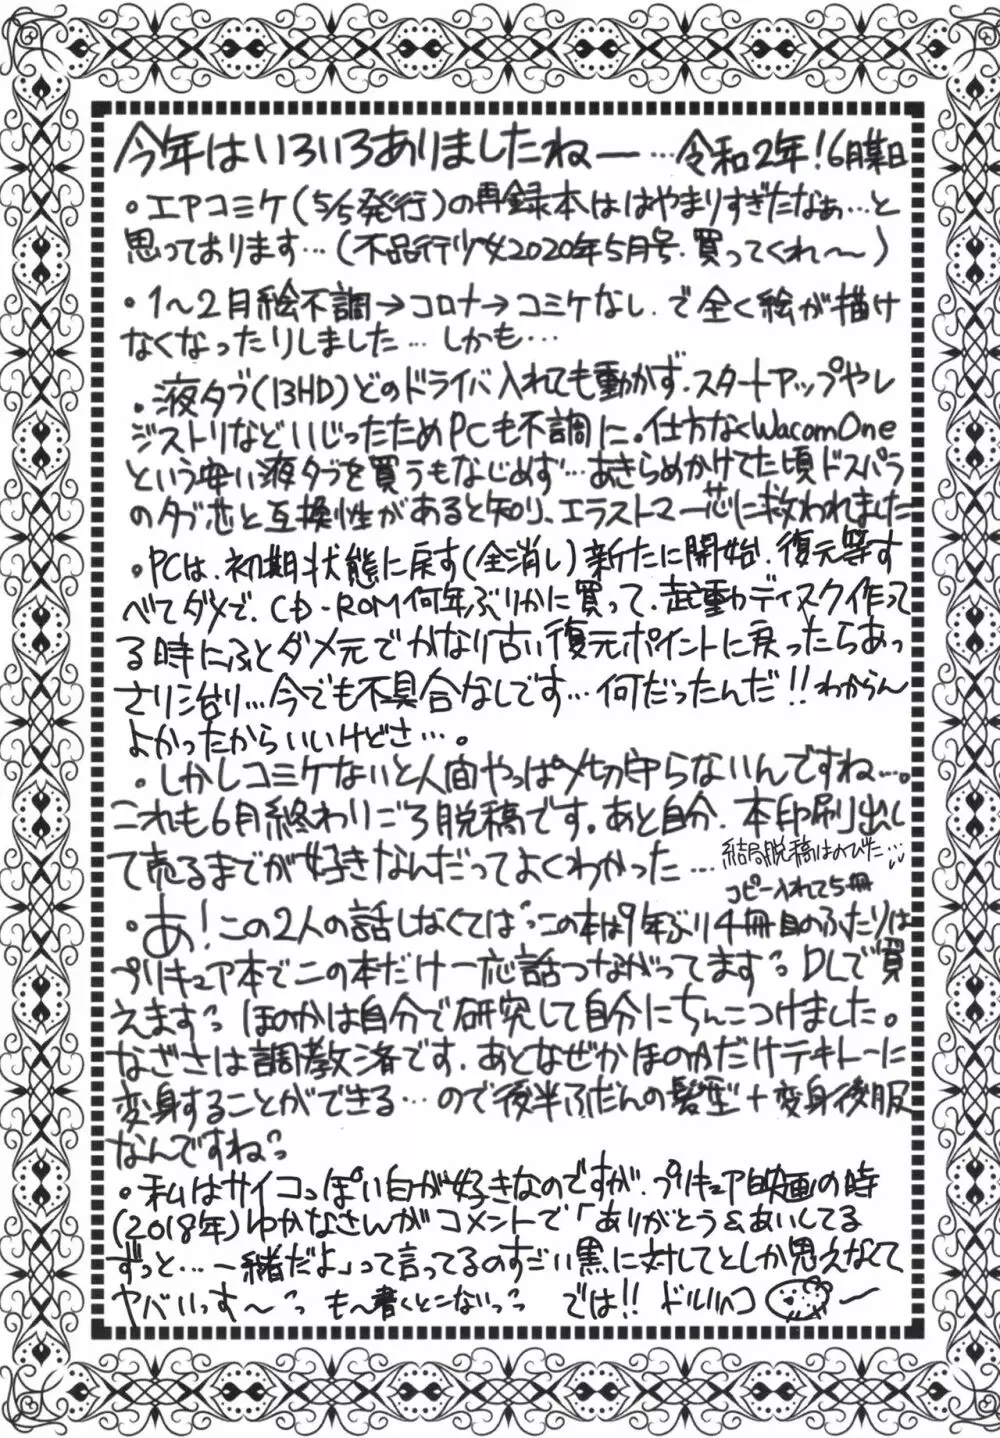 今年はいろいろありましたねー…令和2年!6月某日
・エアコミケ(5/5発行)の再録本ははやまりすぎたなぁ…と
思っております…(不品行少女2020年5月号.買ってくれ〜)
・1〜2月絵不調→コロナ→コミケなし.で全く絵が描け
なくなったりしました…しかも…
・液タブ(13HD)どのドライバ入れても動かず.スタートアップやレ
ジストリなどいじったためPCも不調に。仕方なくWacomOne
という安い液タブを買うもなじめず…あきらめかけてた頃ドスパラ
のタブ芯と互換性があると知り、エラストマー芯に救われました
・PCは、初期状態に戻す(全消し)新たに開始.復元等す
べてダメで、CD-ROM何年ぶりかに買って、起動ディスク作って
る時にふとダメ元でかなり古い復元ポイントに戻ったらあっ
さり治り…今でも不具合なしです…何だったんだ!!わからん
よかったからいいけどさ…。
・しかしコミケないと人間やっぱ〆切守らないんですね…。
これも6月終わりごろ脱稿です。あと自分、本印刷出し
て売るまでが好きなんだってよくわかった…
結局脱稿はのびた…
コピー入れて5冊
・あ!この2人の話しなくては この本は9年ぶり4冊目のふたりは
プリキュア本でこの本だけ一応話つながってます DLで買
えます
・私はサイコっぽい白が好きなのですが、プリキュア映画の時
(2018年)ゆかなさんがコメントで「ありがとう&あいしてる
ずっと…一緒だよ」って言ってるのすごい黒に対してとしか思えなくて
ヤバいっす〜 も〜書くとこないっ では!! ドルリヘコ